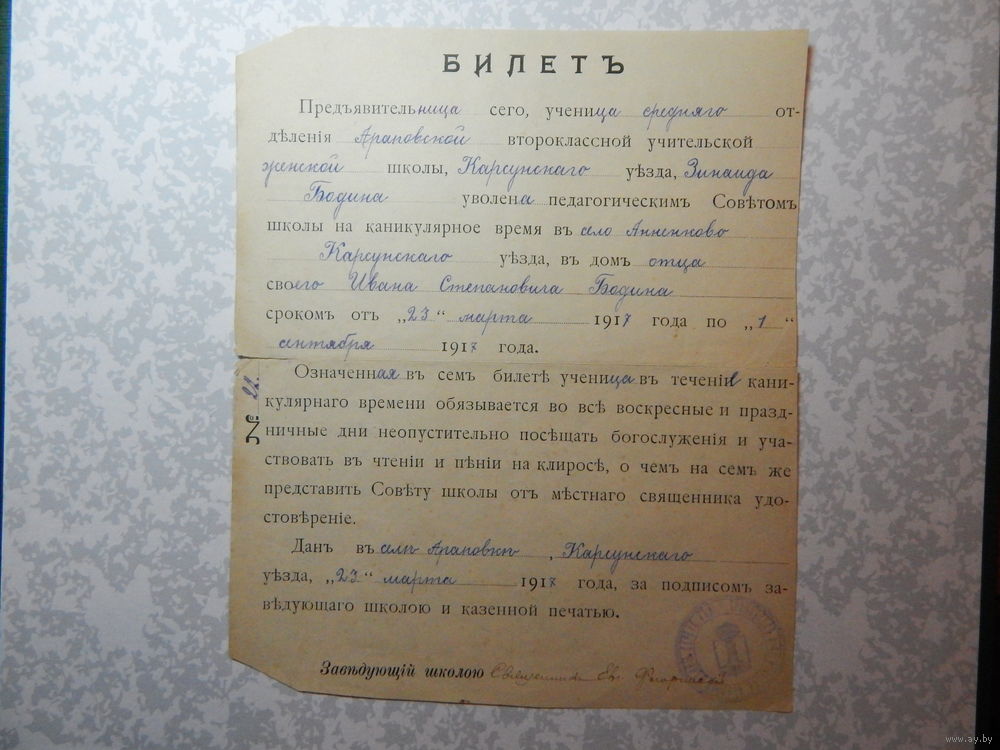 БИЛЕТЪ
Предъявительница сего, ученица средняго от-
дѣленія Араповской второклассной учительской
женской школы, Карсунскаго уѣзда, Зинаида
Бодина уволена педагогическимъ Совѣтомъ
школы на каникулярное время въ село Анненково
Карсунскаго уѣзда, въ домъ отца
своего Ивана Степановича Бодина
срокомъ отъ „23“ марта 1917 года по „1“
сентября 1917 года.
Означенная въ семъ билетѣ ученица въ теченіе кани-
кулярнаго времени обязывается во всѣ воскресные и празд-
ничные дни неопустительно посѣщать богослуженія и уча-
ствовать въ чтеніи и пѣніи на клиросѣ, о чемъ на семъ же
представить Совѣту школы отъ мѣстнаго священника удо-
стовѣреніе.
№ 22.
Данъ въ селѣ Араповкѣ, Карсунскаго
уѣзда, „23“ марта 1917 года, за подписомъ за-
вѣдующаго школою и казенной печатью.
Завѣдующій школою Священникъ Ев.
www.ay.by